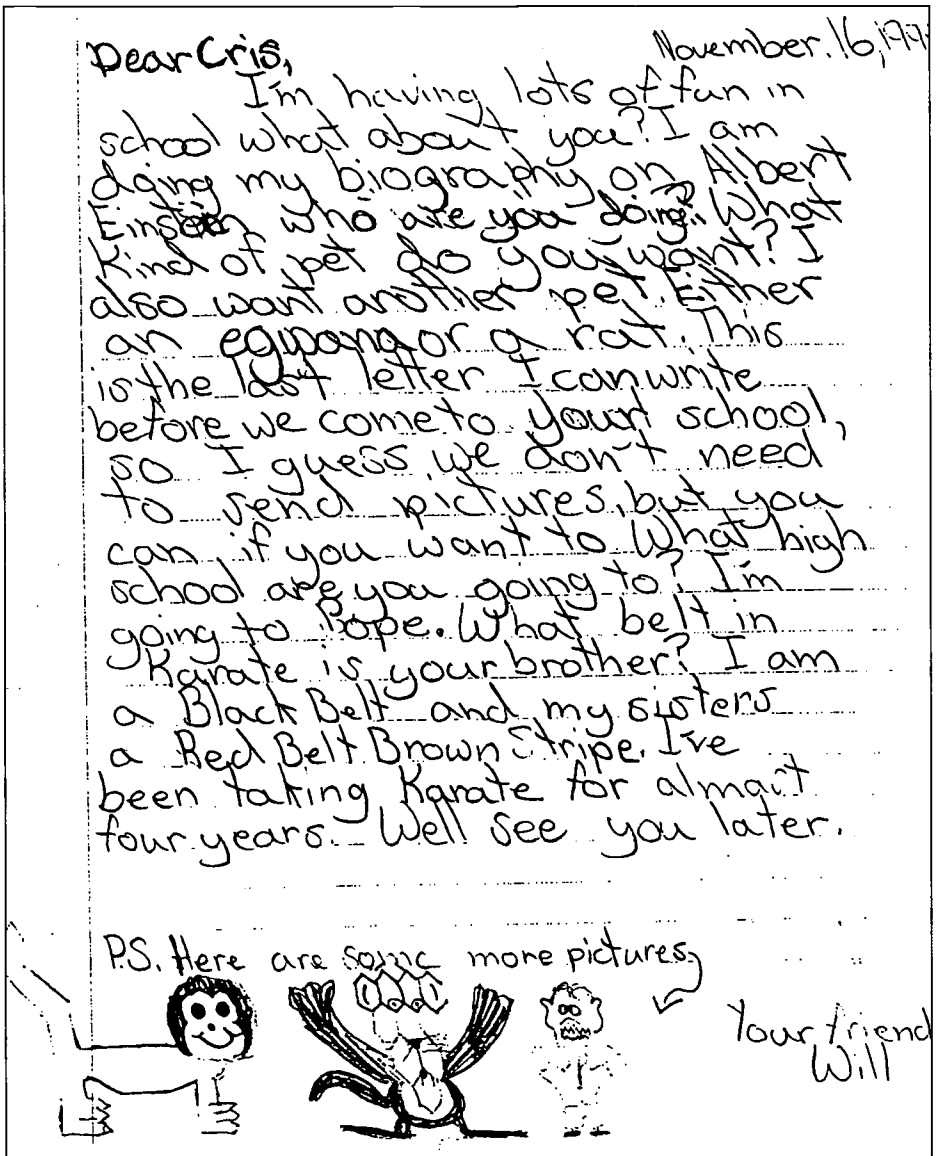 Dear Cris, November. 16, 199
I'm having lots of fun in
school what about you? I am
doing my biography on Albert
Einstein who are you doing? What
kind of pet do you want? I
also want another pet. Either
an egwana or a rat. This
is the last letter I can write
before we come to your school,
so I guess we don't need
to send pictures, but you
can if you want to What high
school are you going to? I'm
going to Pope. What belt in
Karate is your brother? I am
a Black Belt and my sisters
a Red Belt Brown Stripe. I've
been taking Karate for almost
four years. Well see you later.
P.S. Here are some more pictures
Your friend
Will